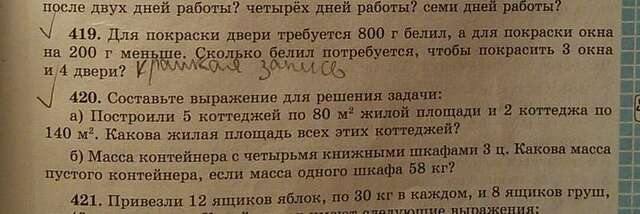 после двух дней работы? четырёх дней работы? семи дней работы?
419. Для покраски двери требуется 800 г белил, а для покраски окна
на 200 г меньше. Сколько белил потребуется, чтобы покрасить 3 окна
и 4 двери? краткая запись
420. Составьте выражение для решения задачи:
а) Построили 5 коттеджей по 80 м² жилой площади и 2 коттеджа по
140 м². Какова жилая площадь всех этих коттеджей?
б) Масса контейнера с четырьмя книжными шкафами 3 ц. Какова масса
пустого контейнера, если масса одного шкафа 58 кг?
421. Привезли 12 ящиков яблок, по 30 кг в каждом, и 8 ящиков груш,
имеют следующие выражения: